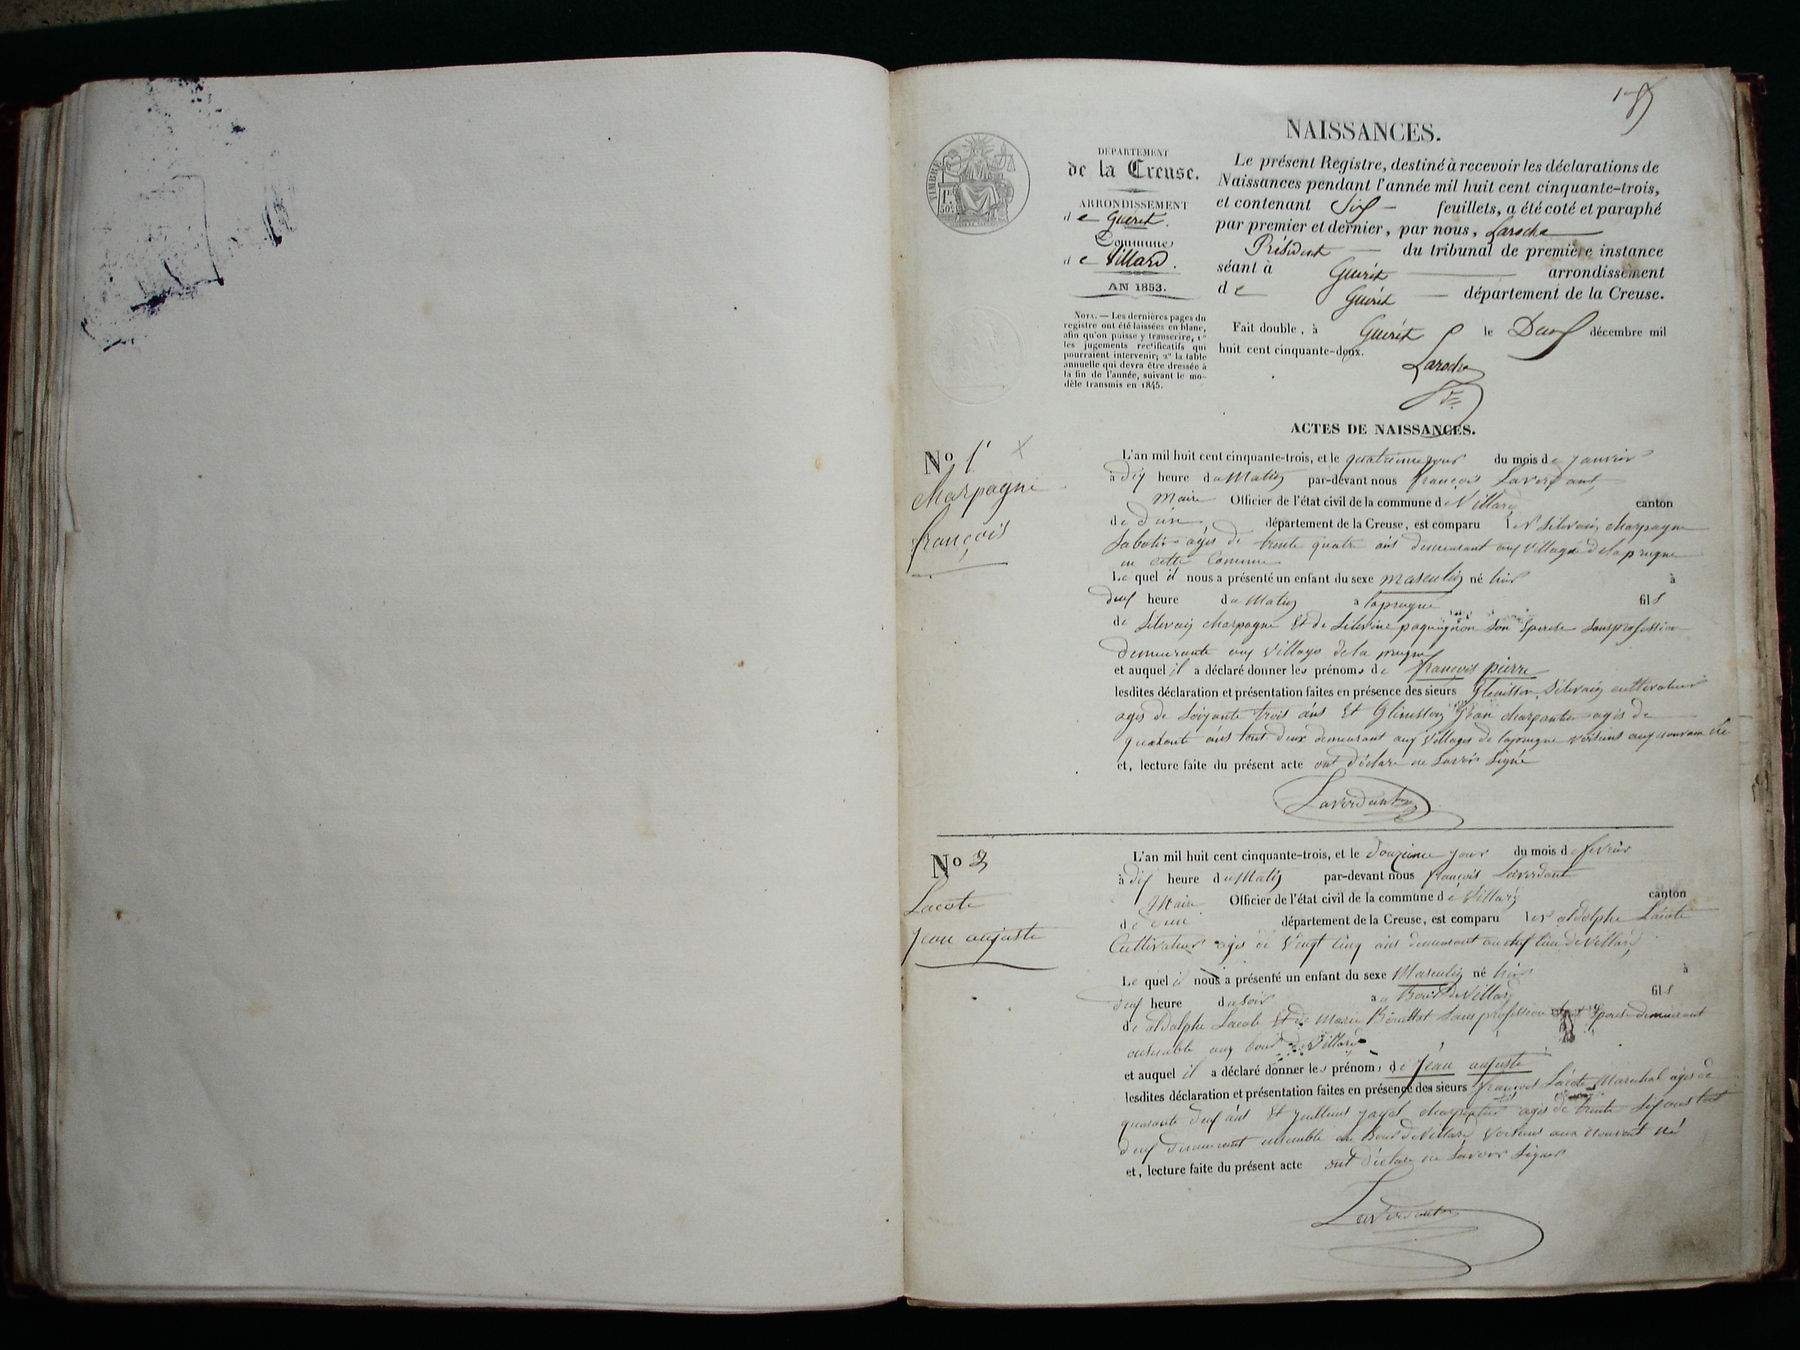 NAISSANCES.
TIMBRE
50c
DÉPARTEMENT
de la Creuse.
ARRONDISSEMENT
de Guéret.
Commune
de Villard.
AN 1853.
NOTA. — Les dernières pages du
registre ont été laissées en blanc,
afin qu'on puisse y transcrire, 1º
les jugements rectificatifs qui
pourraient intervenir; 2º la table
annuelle qui devra être dressée à
la fin de l'année, suivant le mo-
dèle transmis en 1845.
Le présent Registre, destiné à recevoir les déclarations de
Naissances pendant l'année mil huit cent cinquante-trois,
et contenant Six feuillets, a été coté et paraphé
par premier et dernier, par nous, Laroche
Président du tribunal de première instance
séant à Guéret arrondissement
de Guéret département de la Creuse.
Fait double, à Guéret le Deux décembre mil
huit cent cinquante-deux.
Laroche
ACTES DE NAISSANCES.
No 1er
Charpagne
françois
L'an mil huit cent cinquante-trois, et le quatrieme jour du mois de janvier
à dix heure du Matin par-devant nous françois Laverdant
Maire Officier de l'état civil de la commune de Villard canton
de dun département de la Creuse, est comparu Silvain charpagne
Sabotier agés de trente quatre ans demeurant aux village de laprugne
en cette Commune
Le quel il nous a présenté un enfant du sexe masculin né hier à
deux heure du Matin a laprugne fils
de Silvain charpagne Et de Silvine paquignon Son Epouse Sans profession
demeurante aux village de la prugne
et auquel il a déclaré donner les prénoms de françois pierre
lesdites déclaration et présentation faites en présence des sieurs Silvain cultivateur
agés de Soixante trois ans Et Jean charpentier agés de
quarante ans tout deux demeurant aux village de laprugne voisins aux nouveau né
et, lecture faite du présent acte ont déclare ne Savoir Signé
Laverdant
No 2
Lacote
Jean auguste
L'an mil huit cent cinquante-trois, et le douzieme jour du mois de fevrier
à dix heure du Matin par-devant nous françois Laverdant
Maire Officier de l'état civil de la commune de Villard canton
de dun département de la Creuse, est comparu aldolphe Lacote
Cultivateur agés de Vingt Cinq ans demeurant au chef lieu de Villard
Le quel il nous a présenté un enfant du sexe Masculin né hier à
deux heure du soir a Bourg de Villard fils
de aldolphe Lacote Et de Marie Sans profession Epouse demeurant
ensemble aux bourg de Villard
et auquel il a déclaré donner les prénoms de Jean auguste
lesdites déclaration et présentation faites en présence des sieurs françois Lacote Marechal agés de
quarante deux ans Et charpentier agés de trente Six ans tout
deux demeurant ensemble au Bourg de Villard Voisins aux nouveau né
et, lecture faite du présent acte ont déclare ne Savoir Signer
Laverdant